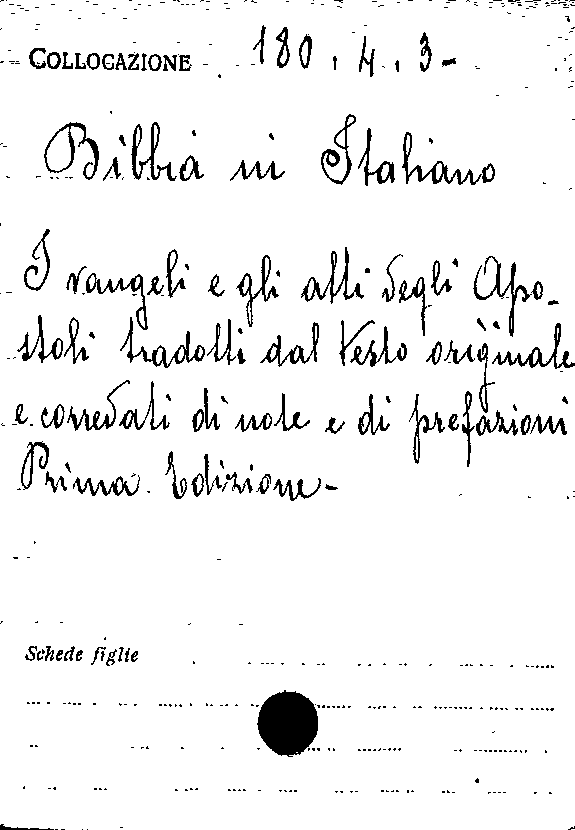 COLLOCAZIONE 180.4.3-
Bibbia in Italiano
I vangeli e gli atti degli Apo-
stoli tradotti dal testo originale
e corredati di note e di prefazioni
Prima Edizione-
Schede figlie